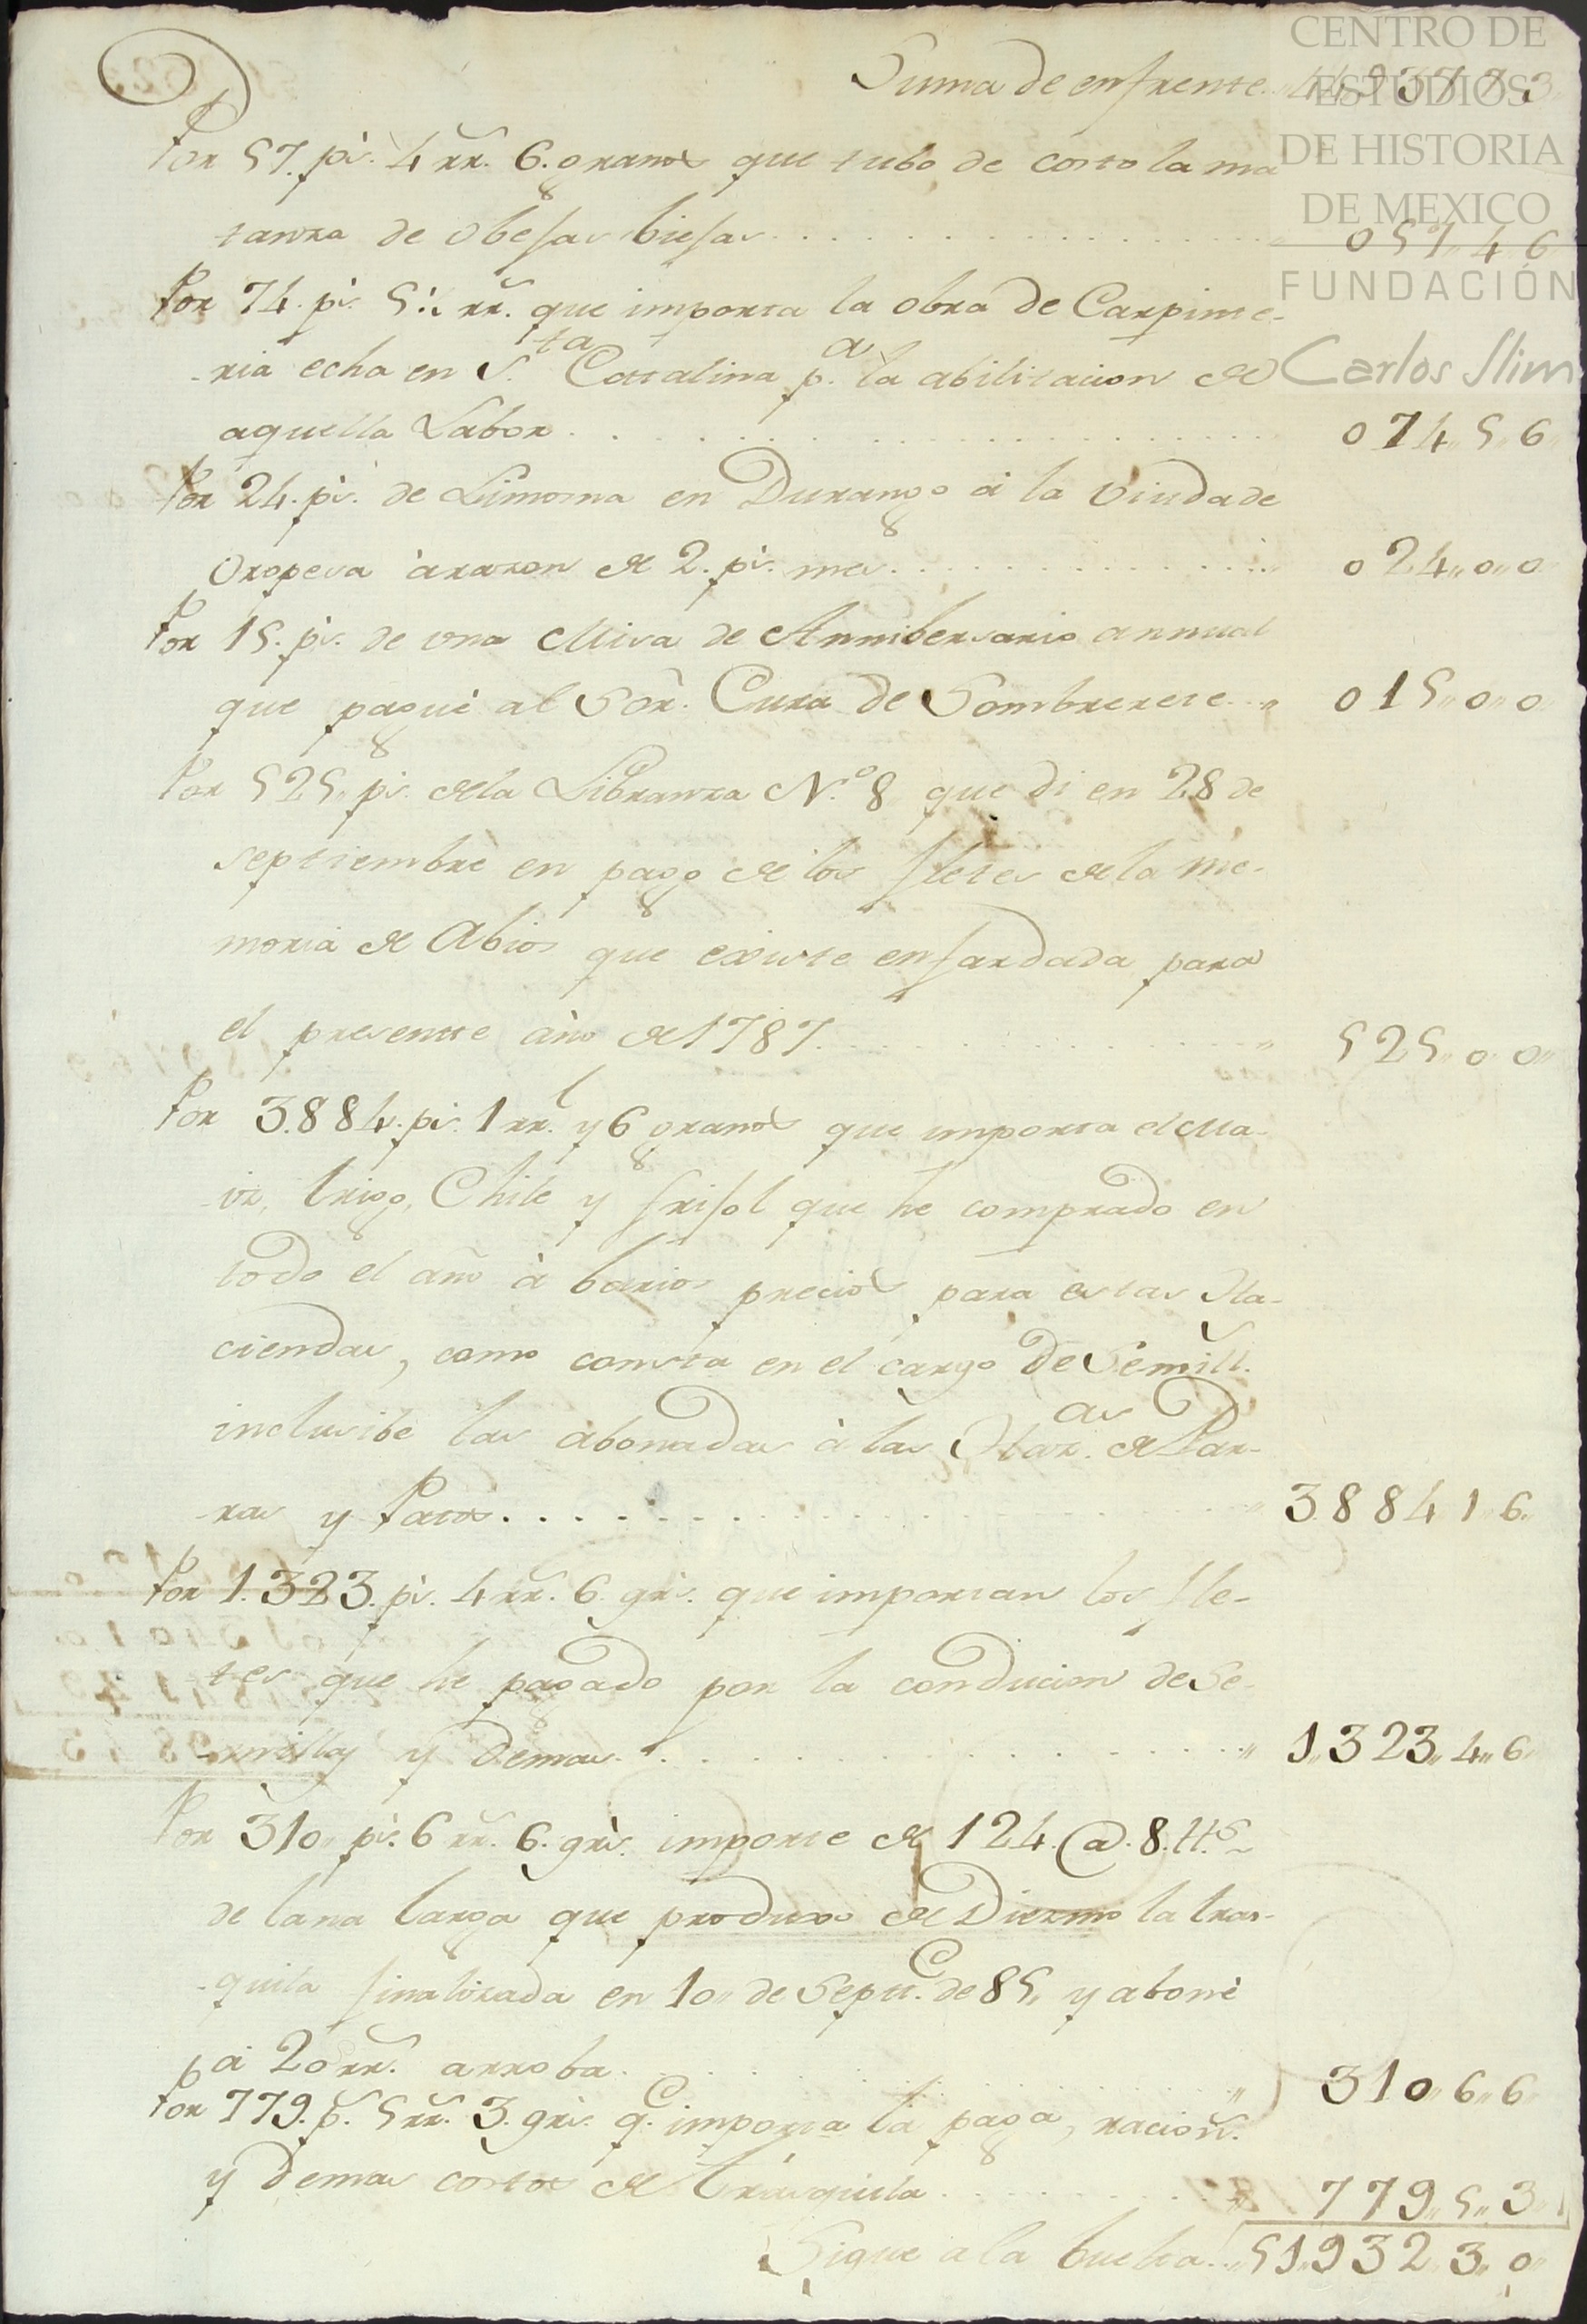 CENTRO DE
ESTUDIOS
DE HISTORIA
DE MEXICO
FUNDACIÓN
Carlos Slim
Suma de enfrente 44.937 7 3
Por 57. ps. 4 rr. 6. granos que tubo de costo la ma
tanza de obejas biejas . . . 057 4 6
Por 74. ps. 5½ rr. que importa la obra de Carpinte-
-ria echa en S.ta Cattalina p.a la abilitacion de
aquella Labor . . . 074 5 6
Por 24. ps. de Limosna en Durango à la Viuda de
Oropesa à razon de 2. ps. mes . . . 024 0 0
Por 15. ps. de una Misa de Annibersario annual
que paguè al Sōr. Cura de Sombrerete 015 0 0
Por 525 ps. de la Libranza N.o 8 que di en 28 de
septiembre en pago de los fletes de la me-
moria de Abios que existe enfardada para
el presentte año de 1787 . . . 525 0 0
Por 3.884. ps. 1 rr.l y 6 granos que importa el Ma-
-iz, trigo, Chile y frijol que he comprado en
todo el año à barios precios para estas Ha-
ciendas, como consta en el cargo de Semill.
inclusibe las abonadas à las Haz.as de Par-
-ras y Patos . . . 3.884 1 6
Por 1.323. ps. 4 rr. 6. grs. que importan los fle-
-tes que he pagado por la conducion de Se-
-millas y demas . . . 1.323 4 6
Por 310 ps. 6 rr. 6. grs. importe de 124. @. 8. tts
de lana larga que produxo de Diezmo la tras-
-quila finalizada en 10 de Sepu.e de 85, y abonè
à 20 rr. arroba . . . 310 6 6
Por 779. p. 5 rr. 3. grs. q.e importa la paga, racion.
y demas costos de trasquila . . . 779 5 3
Sigue a la buelta 51.932 3 0